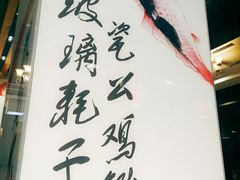 玻璃耗干
瓷公鸡